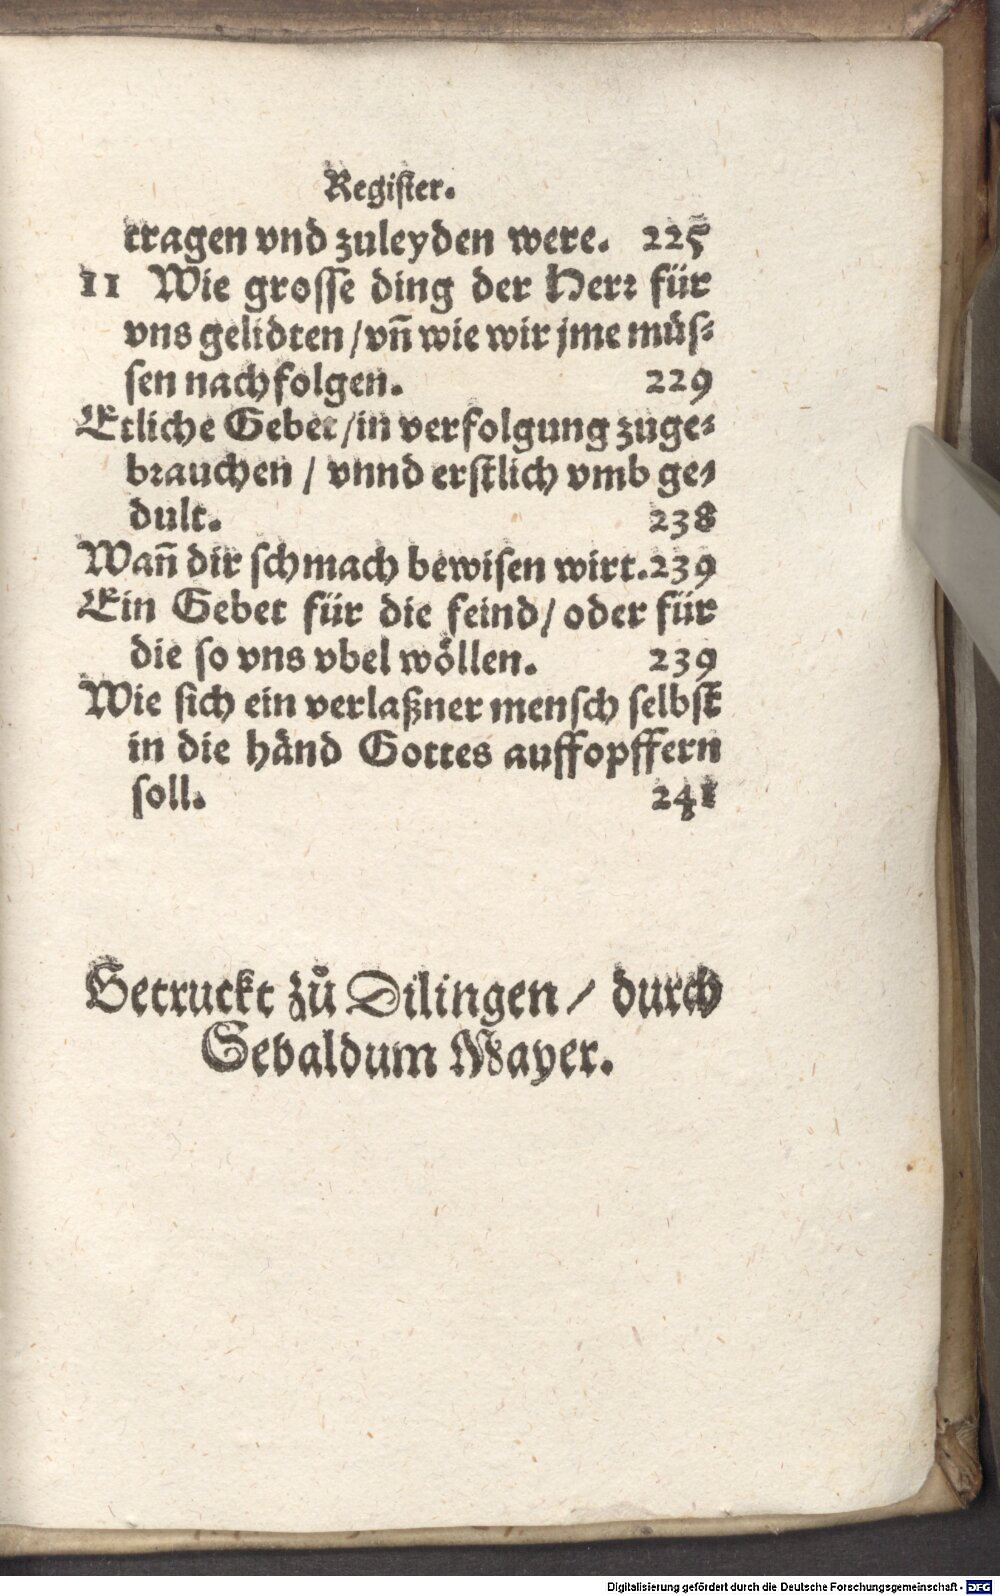 Register.
tragen vnd zuleyden were. 225
11 Wie grosse ding der Herr für
vns gelidten / vñ wie wir jme müs-
sen nachfolgen. 229
Etliche Gebet / in verfolgung zuge-
brauchen / vnnd erstlich vmb ge-
dult. 238
Wañ dir schmach bewisen wirt. 239
Ein Gebet für die feind / oder für
die so vns vbel wöllen. 239
Wie sich ein verlaßner mensch selbst
in die händ Gottes auffopffern
soll. 241
Getruckt zů Dilingen / durch
Sebaldum Mayer.
Digitalisierung gefördert durch die Deutsche Forschungsgemeinschaft - DFG